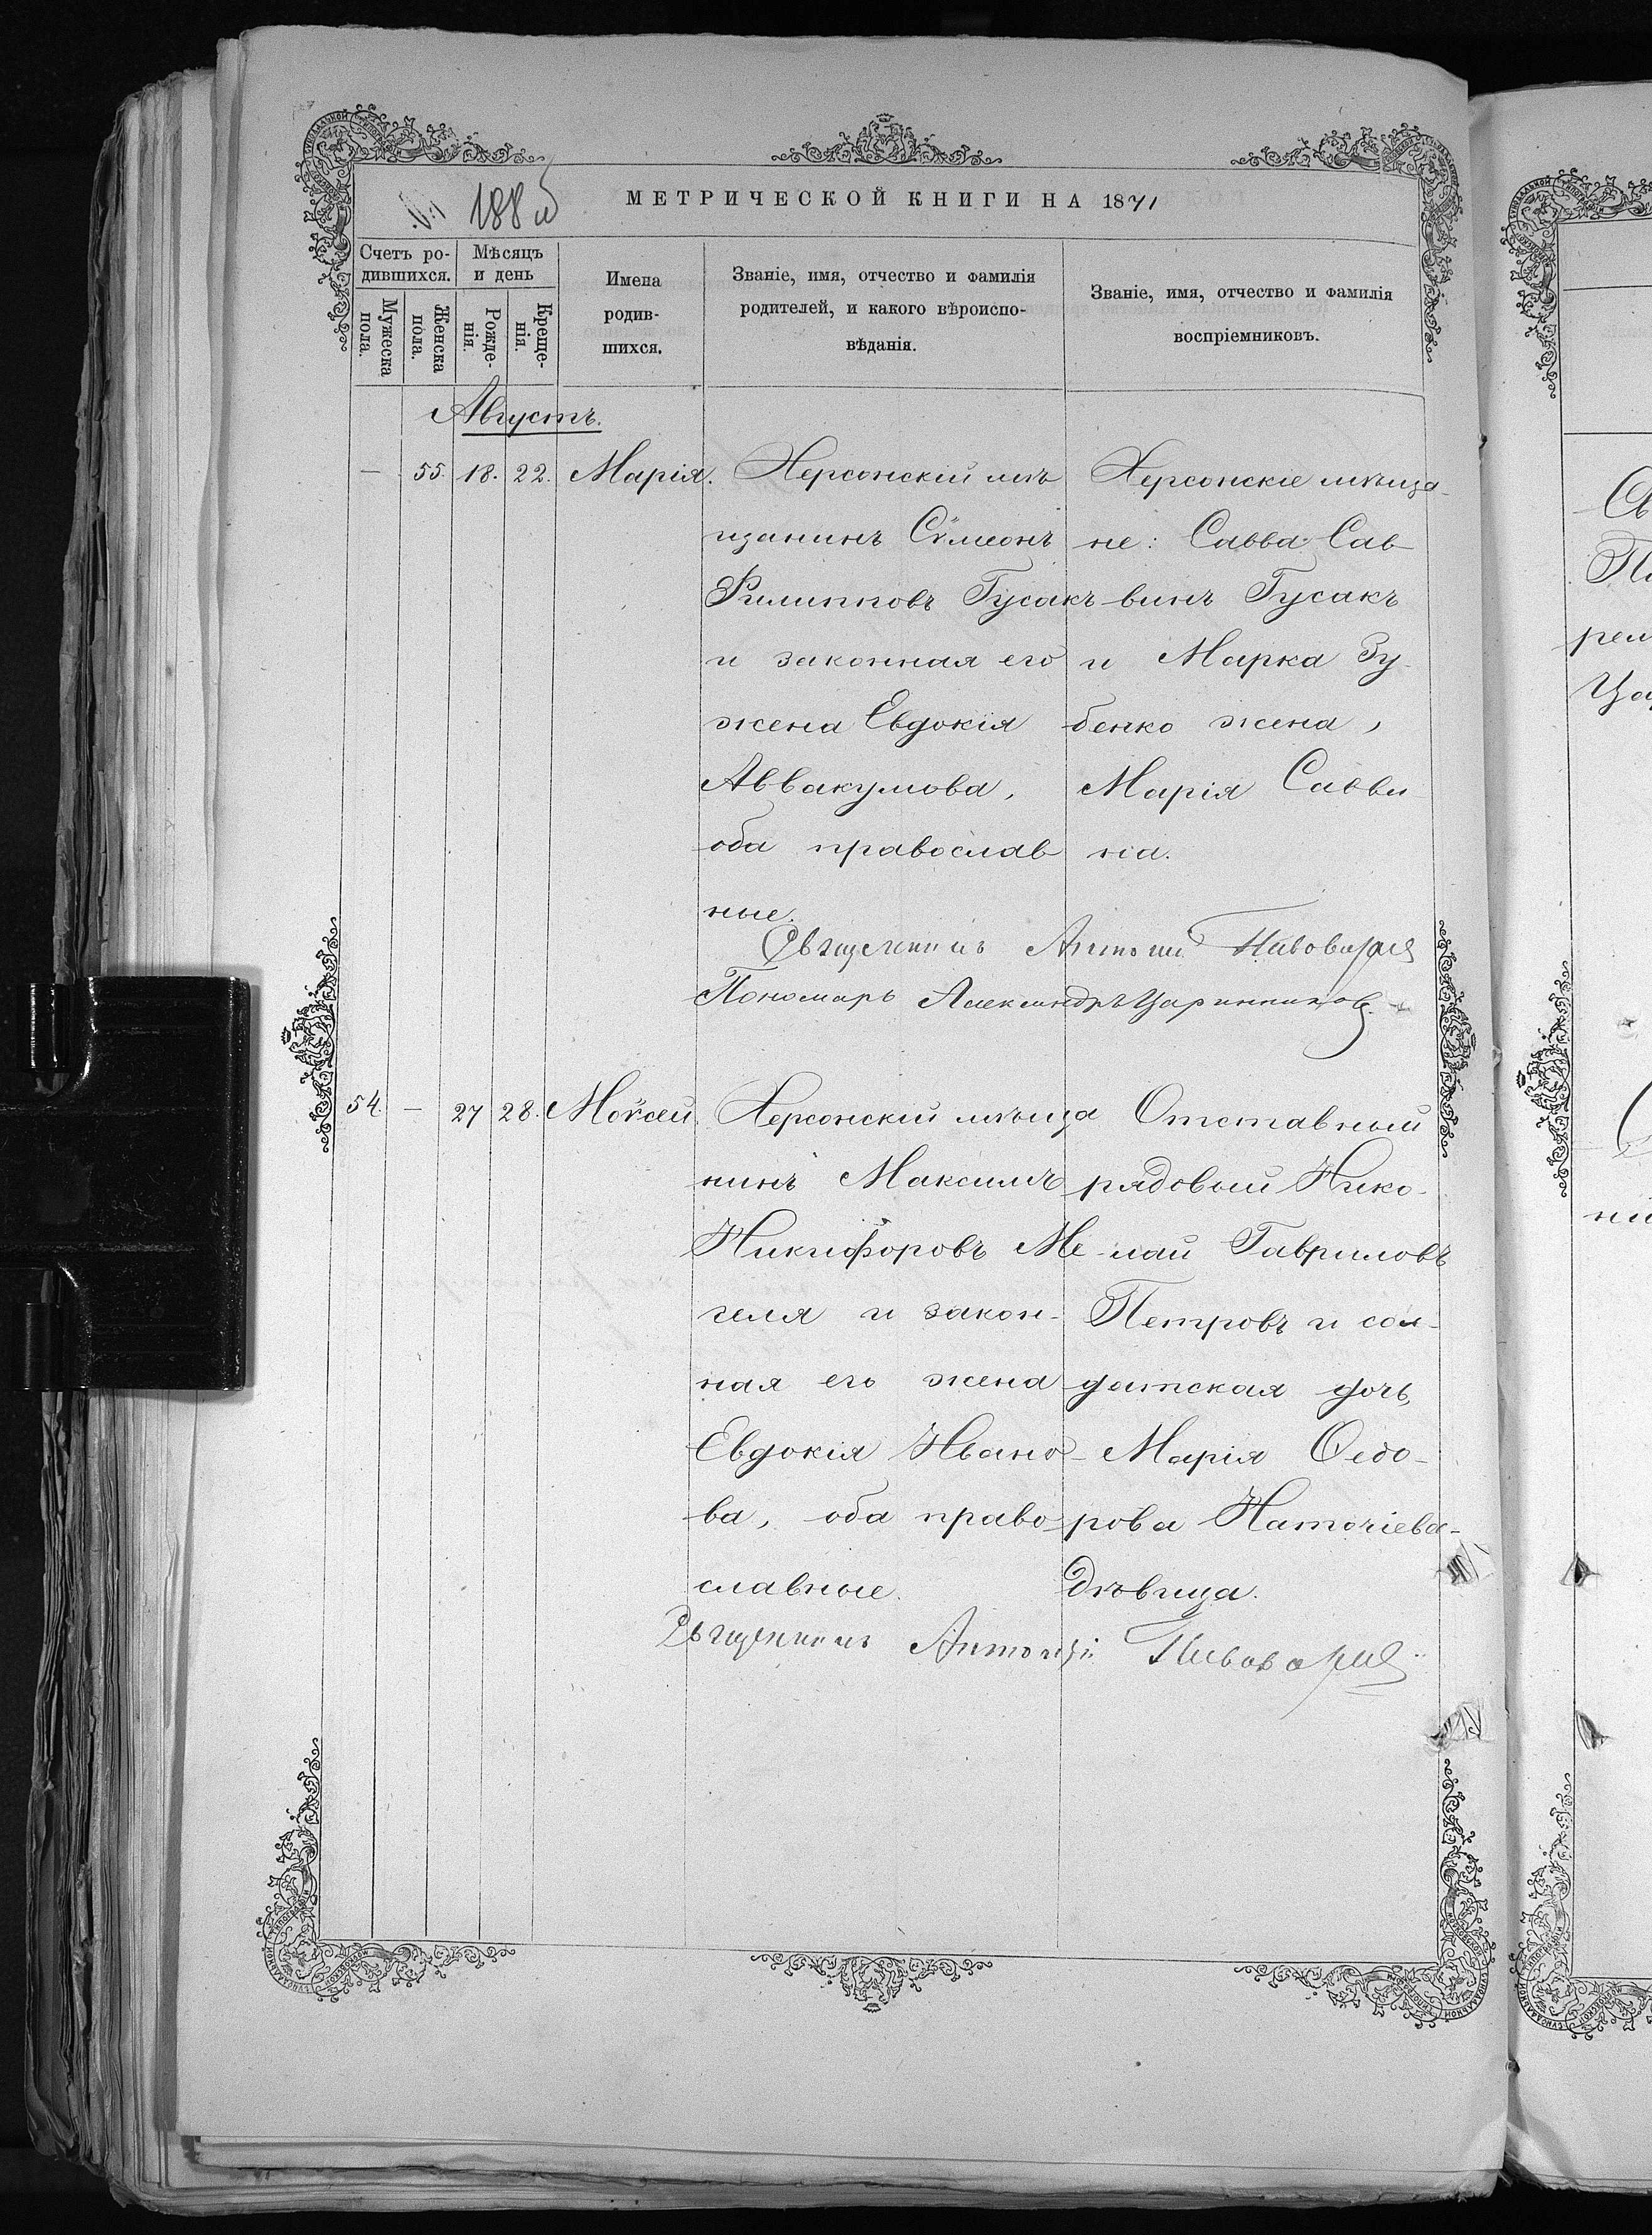 188 об
МЕТРИЧЕСКОЙ КНИГИ НА 1871
Счетъ ро-
дившихся.
Мѣсяцъ
и день
Мужеска
пола.
Женска
пола.
Рожде-
нія.
Креще-
нія.
Имена
родив-
шихся.
Званіе, имя, отчество и фамилія
родителей, и какого вѣроиспо-
вѣданія.
Званіе, имя, отчество и фамилія
воспріемниковъ.
Августъ.
— 55. 18. 22. Марія.
Херсонскій мѣ
щанинъ Сѵмеонъ
Филипповъ Гусакъ
и законная его
жена Евдокія
Аввакумова,
оба православ
ные.
Херсонскіе мѣща-
не: Савва Сав-
винъ Гусакъ
и Марка Зу-
бенко жена,
Марія Савви
на.
Священникъ Антоній Пивоваровъ
Пономарь Александръ Царинниковъ.
54. — 27 28. Моѵсей.
Херсонскій мѣща
нинъ Максимъ
Никифоровъ Ме-
геля и закон-
ная его жена
Евдокія Ивано-
ва, оба право-
славные.
Отставный
рядовый Нико-
лай Гавриловъ
Петровъ и сол-
датская дочь,
Марія Ѳедо-
рова Наточіева-
дѣвица.
Священникъ Антоній Пивоваровъ
Св
ре
ни